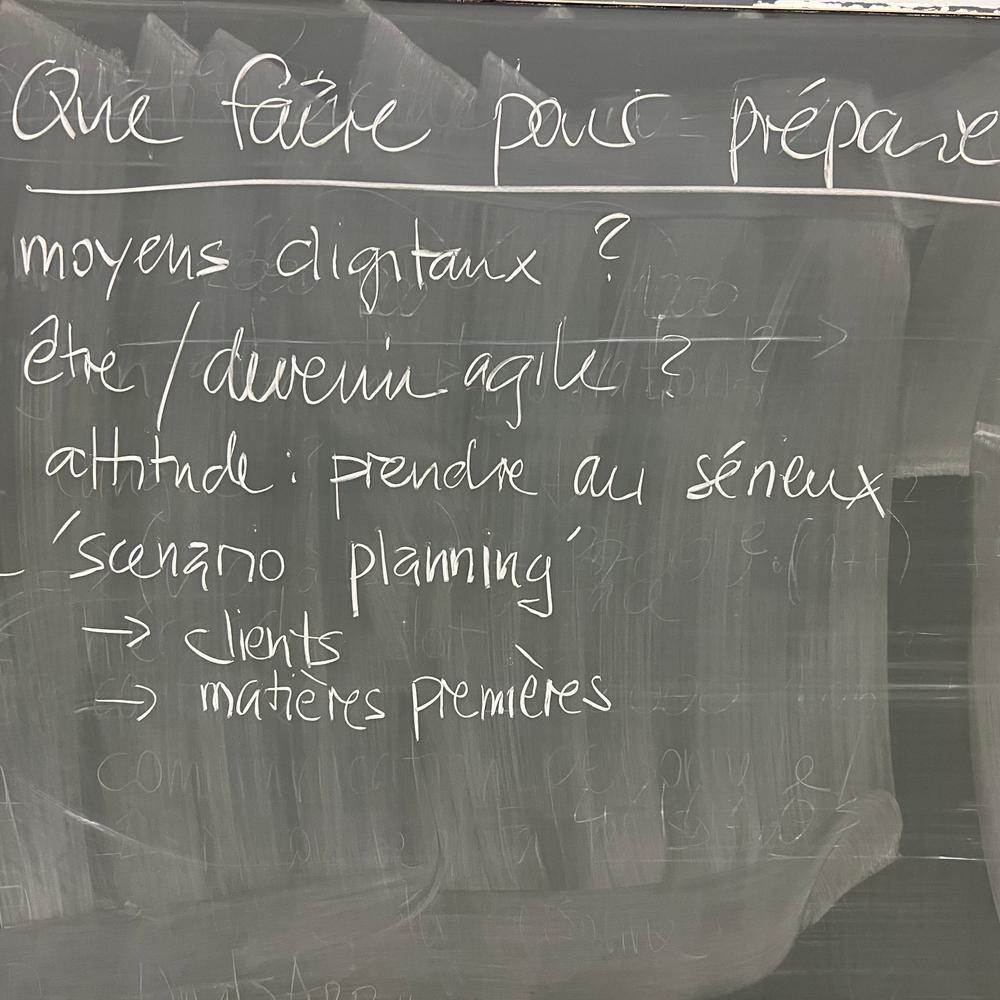 Que faire pour prépare
moyens digitaux ?
être / devenir agile ?
attitude : prendre au sérieux
'scenario planning'
→ clients
→ matières premières